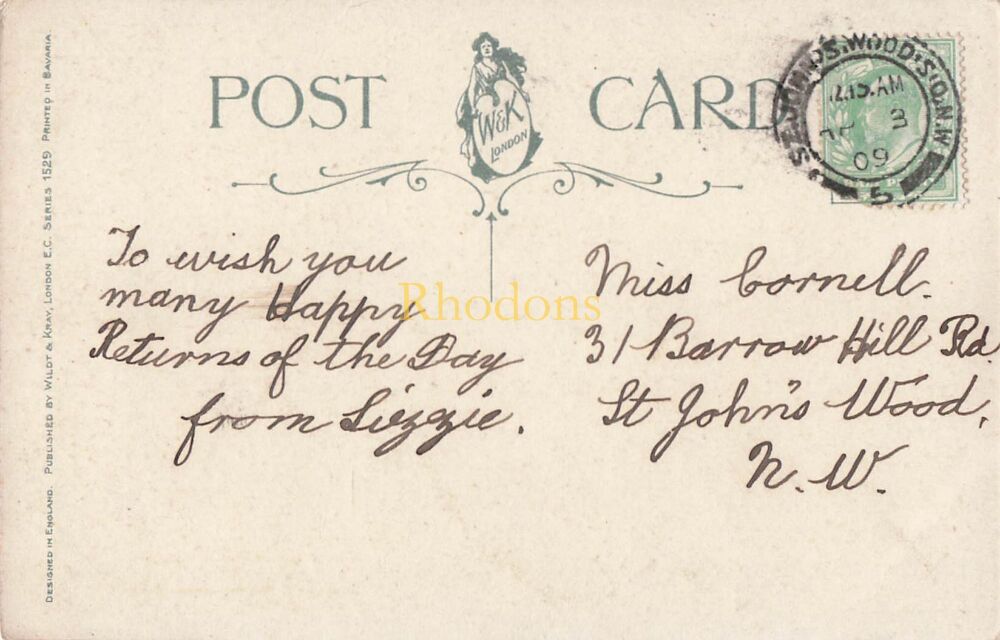 POST CARD
W&K
LONDON
ST JOHN'S.WOOD.S.O.N.W
12.15.AM
3
09
5
To wish you
many Happy
Returns of the Day
from Lizzie.
Miss Cornell.
31 Barrow Hill Rd.
St John's Wood,
N.W.
Rhodons
DESIGNED IN ENGLAND. PUBLISHED BY WILDT & KRAY, LONDON E.C. SERIES 1529 PRINTED IN BAVARIA